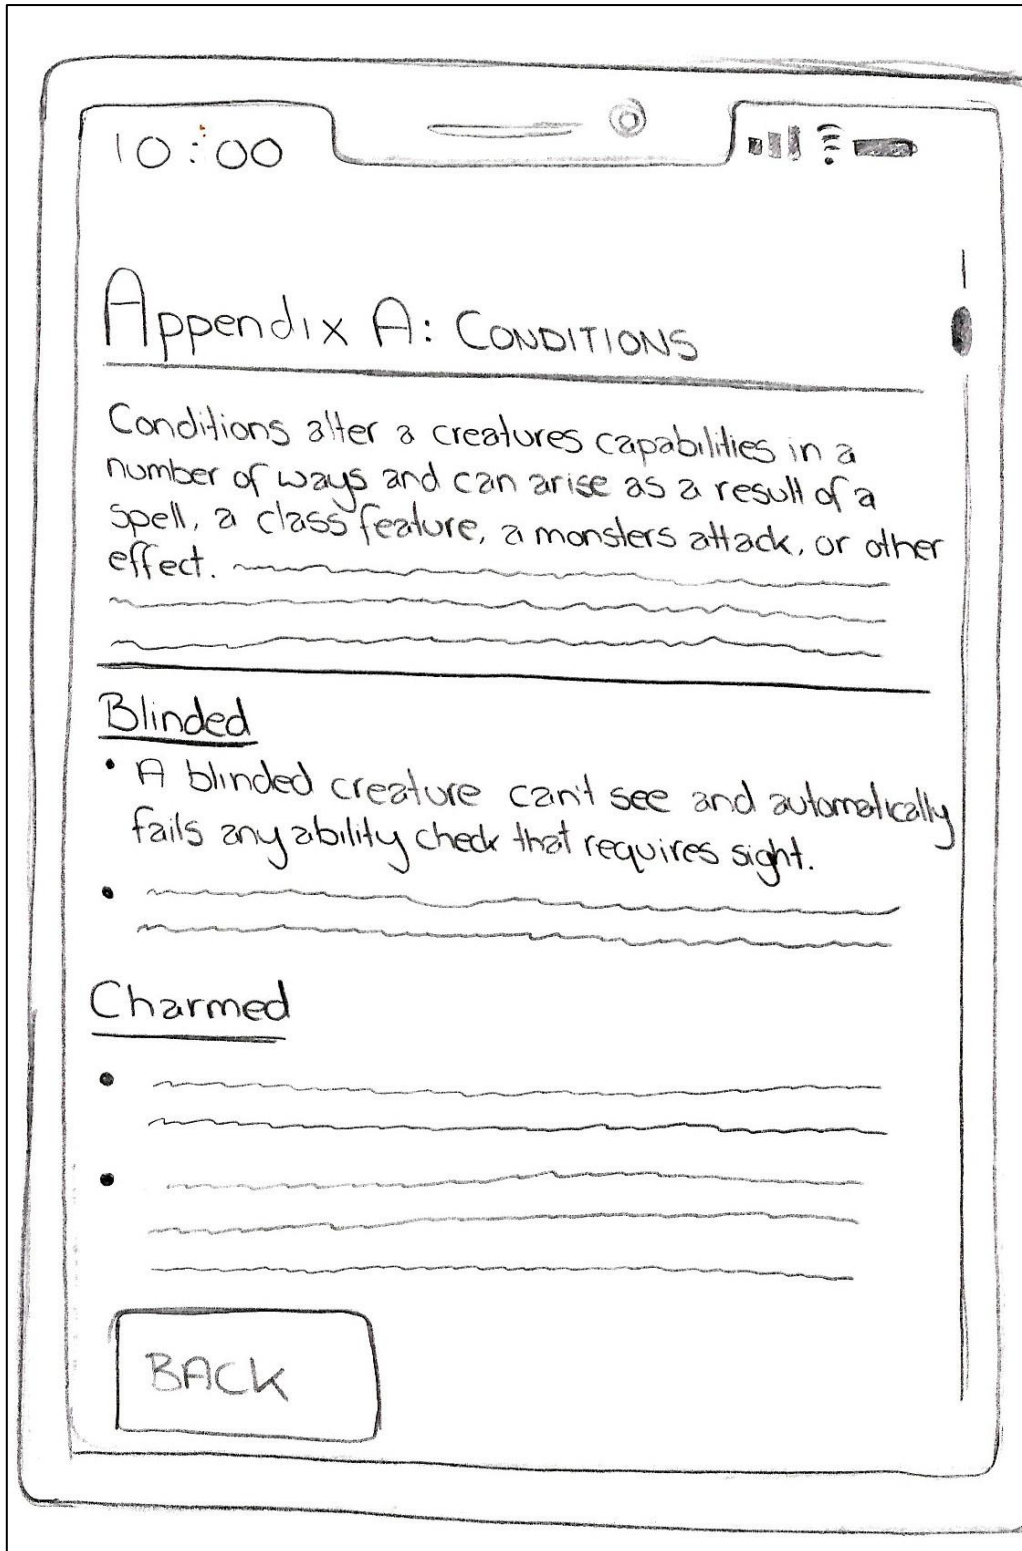 10:00
Appendix A: CONDITIONS
Conditions alter a creatures capabilities in a
number of ways and can arise as a result of a
spell, a class feature, a monsters attack, or other
effect.
Blinded
• A blinded creature can't see and automatically
fails any ability check that requires sight.
•
Charmed
•
•
BACK